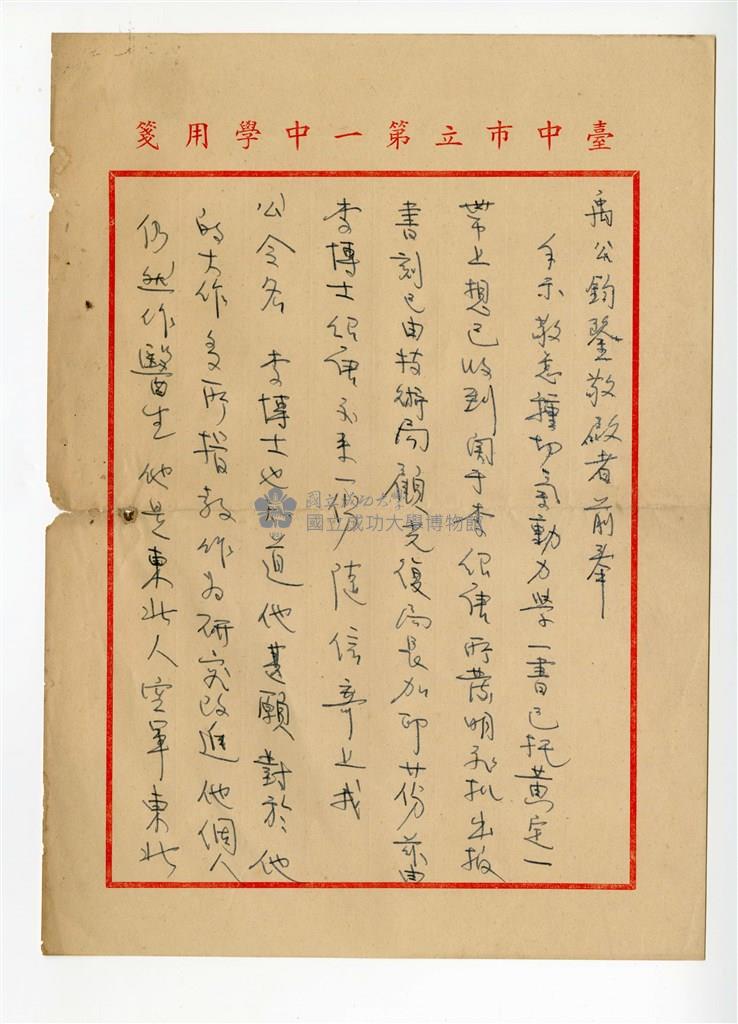 臺中市立第一中學用箋
禹公鈞鑒敬啟者前奉
手示敬悉種切氣動力學一書已托黃定一
帶上想已收到關于李紹唐所發明飛機出版
書刻已由技術局顧光復局長加印廿份茲由
李博士紹唐交來一份隨信寄上我
公令名 李博士也知道他甚願對於他
的大作多所指教作為研究改進他個人
仍然作醫生他是東北人空軍東北
國立成功大學
國立成功大學博物館